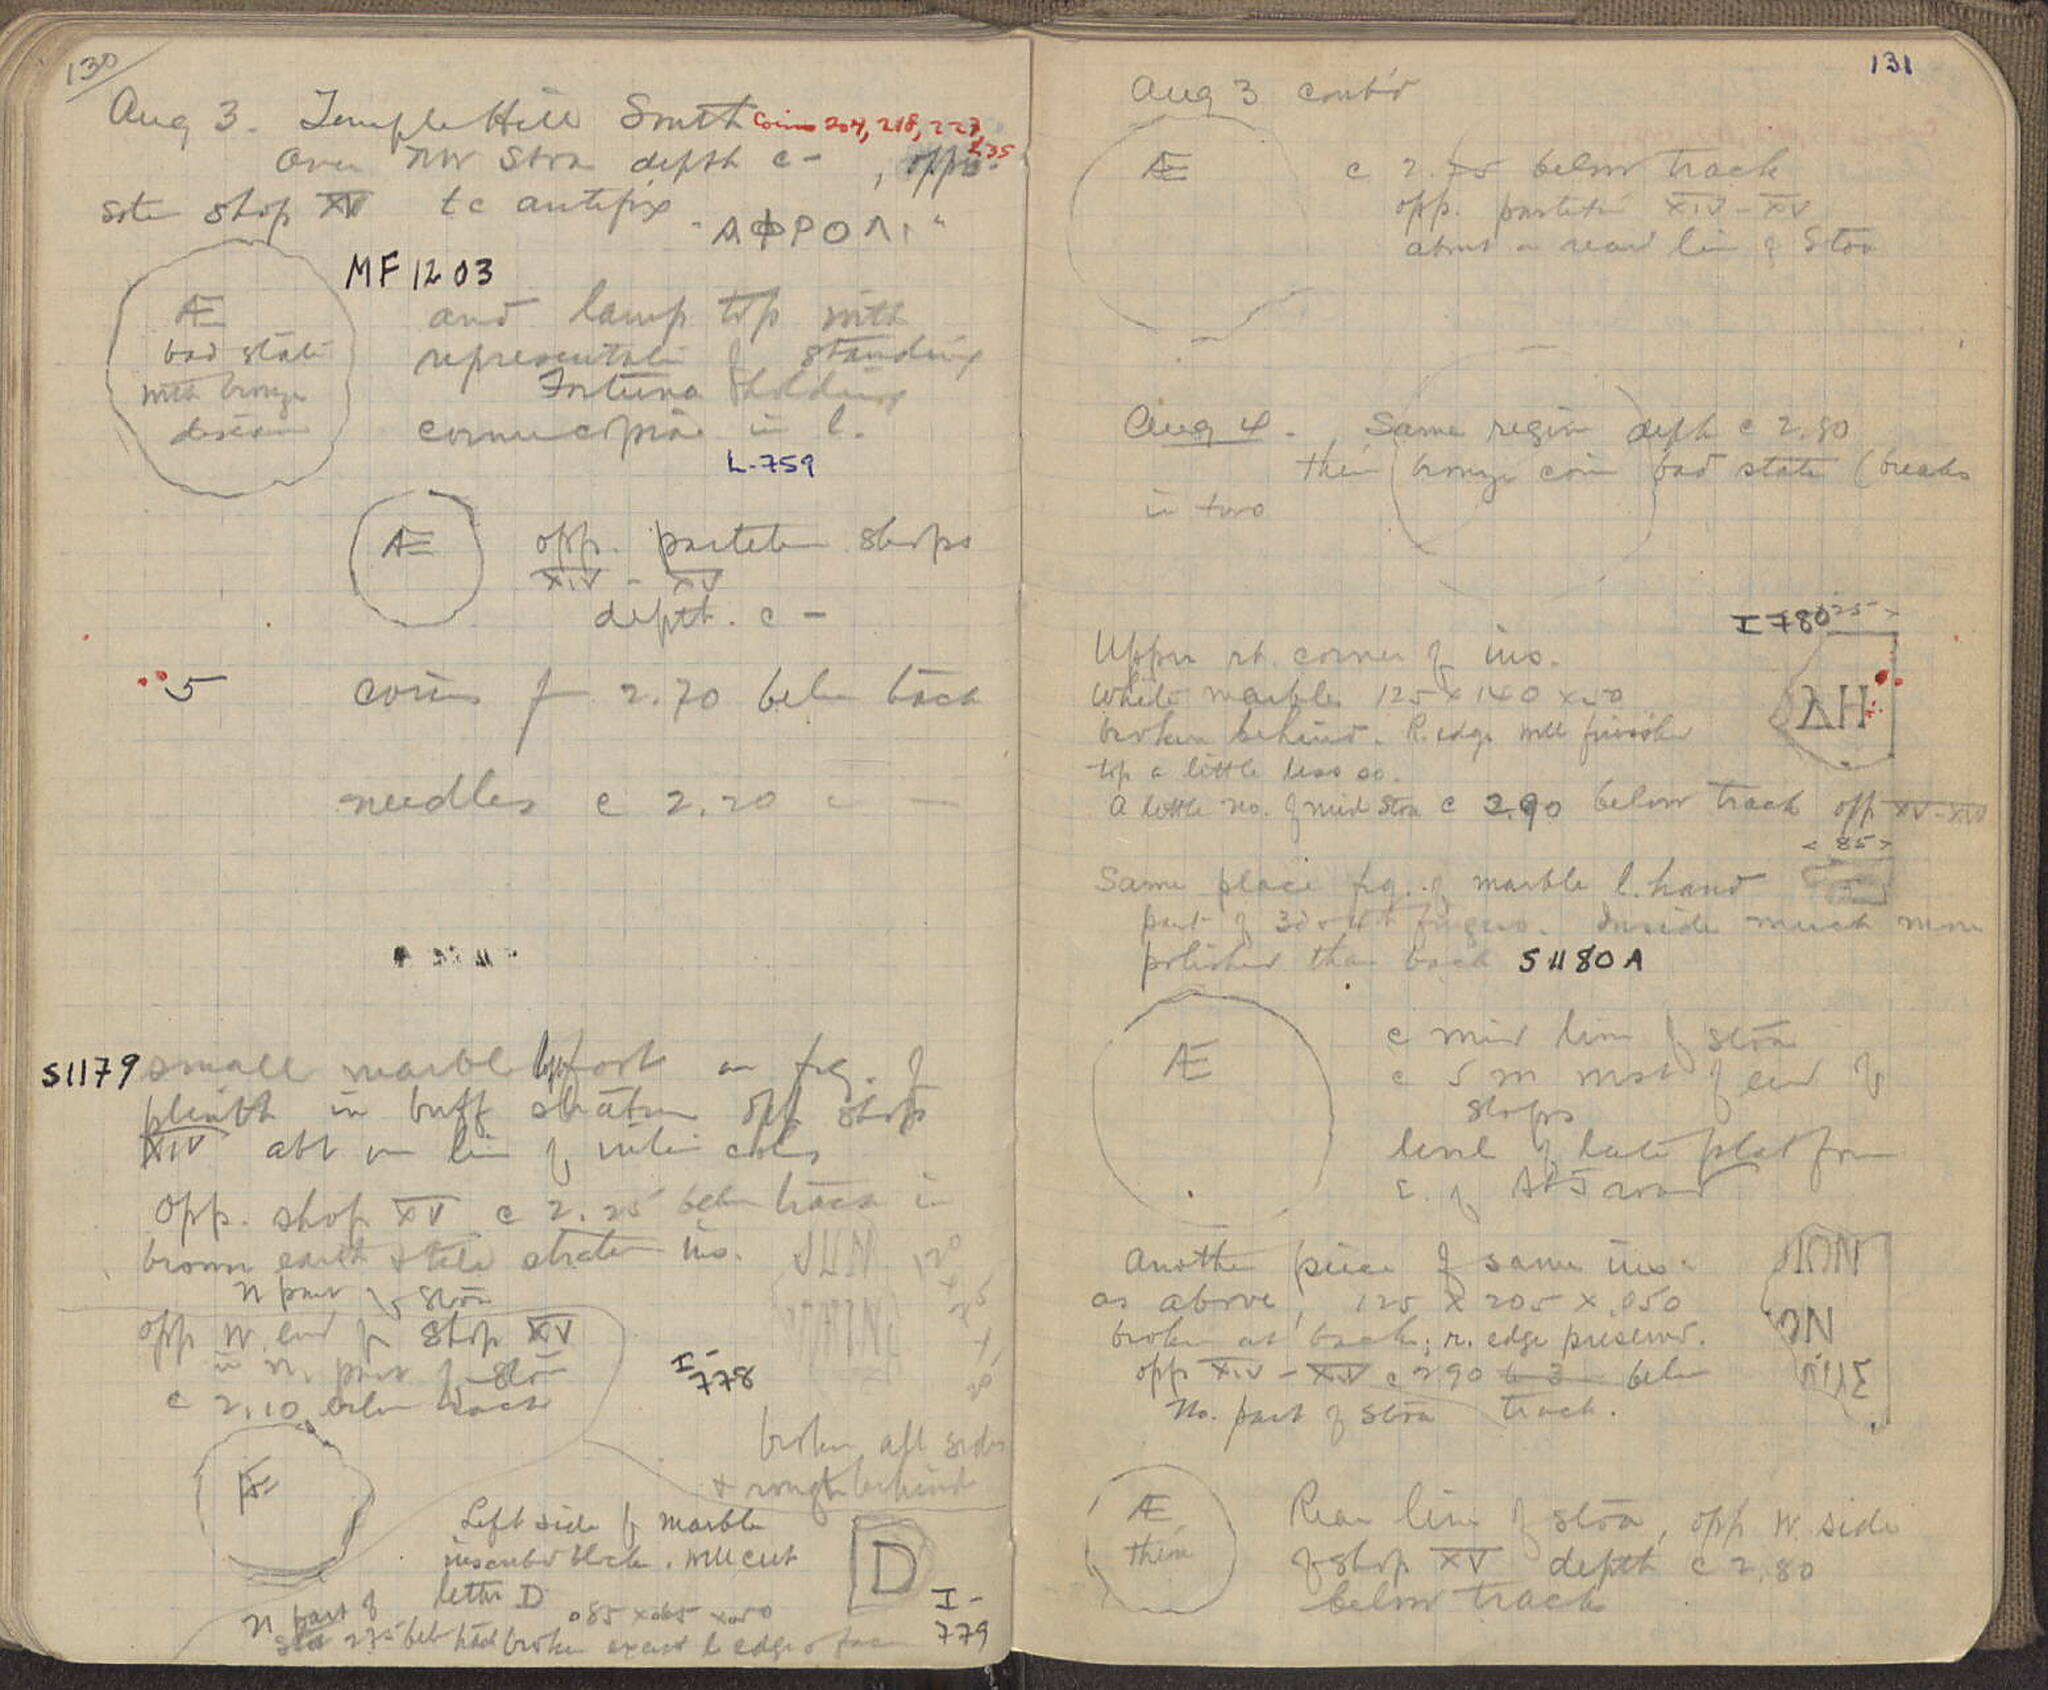 130
Aug 3. Temple Hill South Coins 204, 218, 227, 235
Over NW Stoa depth c – , oppo-
site shop XV tc antefix
"ΑΦΡΟΛΙ"
MF 1203
Æ
bad state
with bronze
disease
and lamp top with
representati of standing
Fortuna holding
cornucopiae in l.
L-759
Æ
opp. partition shops
XIV - XV
depth. c –
5 coins f 2.70 below track
needles c 2.20
S1179 small marble foot on frg. of
plinth in buff stratum opp shop
XIV abt on line of interior cols
Opp. shop XV c 2.25 below track in
brown earth & tile stratum ins.
N part of stoa
120 x
opp W. end of Shop XV
in N. part of stoa
c 2.10 below track
I-
778
Æ
broken all sides
& rough behind
Left side of marble
inscribed block. well cut
letter D
D
I-
779
N part of
stoa 275 below track broken except l edge & face
131
Aug 3 cont'd
Æ
c 2.75 below track
opp. partition XIV-XV
about on rear line of Stoa
Aug 4. Same region depth c 2.80
thin bronze coin bad state (breaks
in two
I-780
Upper rt. corner of ins.
White marble 125 x 140 x 50
broken behind. R. edge well finished
top a little less so.
ΛΗ
A little no. of mid Stoa c 2.90 below track opp XV-XIV
< 85 >
Same place frg. of marble l. hand
part of 3d & 4th fingers. Inside much more
polished than back S1180A
Æ
c mid line of stoa
c 5 m west of end of
shops
level of late platform
E. of St J road
Another piece of same ins.
as above, 125 x 205 x .050
broken at back; r. edge preserved.
opp XIV - XV c 290 to 3 below
No. part of stoa track.
Æ
thin
Rear line of stoa, opp W. side
of shop XV depth c 2.80
below track